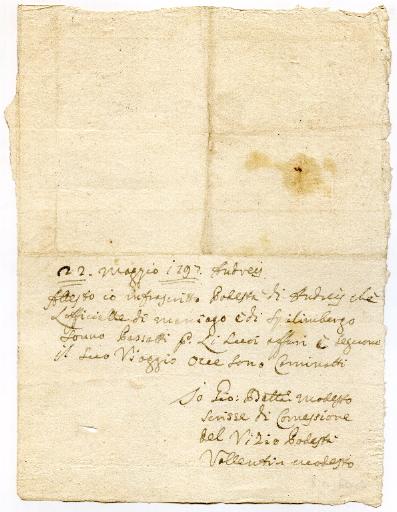 22. Maggio 1797. Andreis
Attesto io infrascritto Podestà di Andreis che
L'officielle di Maniago e di Spilimbergo
sonno Passatti P. Li Luoi affari e seguono
il suo Viaggio Ore sono Cominatti
Io Gio: Batta: Modesto
scrisse di Comessione
del Vizio Podestà
Vallentin Modesto